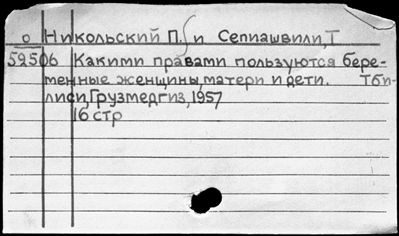 о Никольский П. и Сепиашвили, Т
59506 Какими правами пользуются бере-
менные женщины, матери и дети. Тби-
лиси, Грузмедгиз, 1957
16 стр